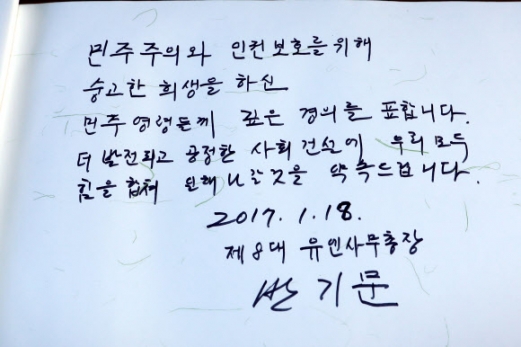 민주주의와 인권보호를 위해
숭고한 희생을 하신
민주영령들께 깊은 경의를 표합니다.
더 발전되고 공정한 사회 건설에 우리 모두
힘을 합쳐 나갈 것을 약속드립니다.
2017. 1. 18.
제8대 유엔사무총장
반기문